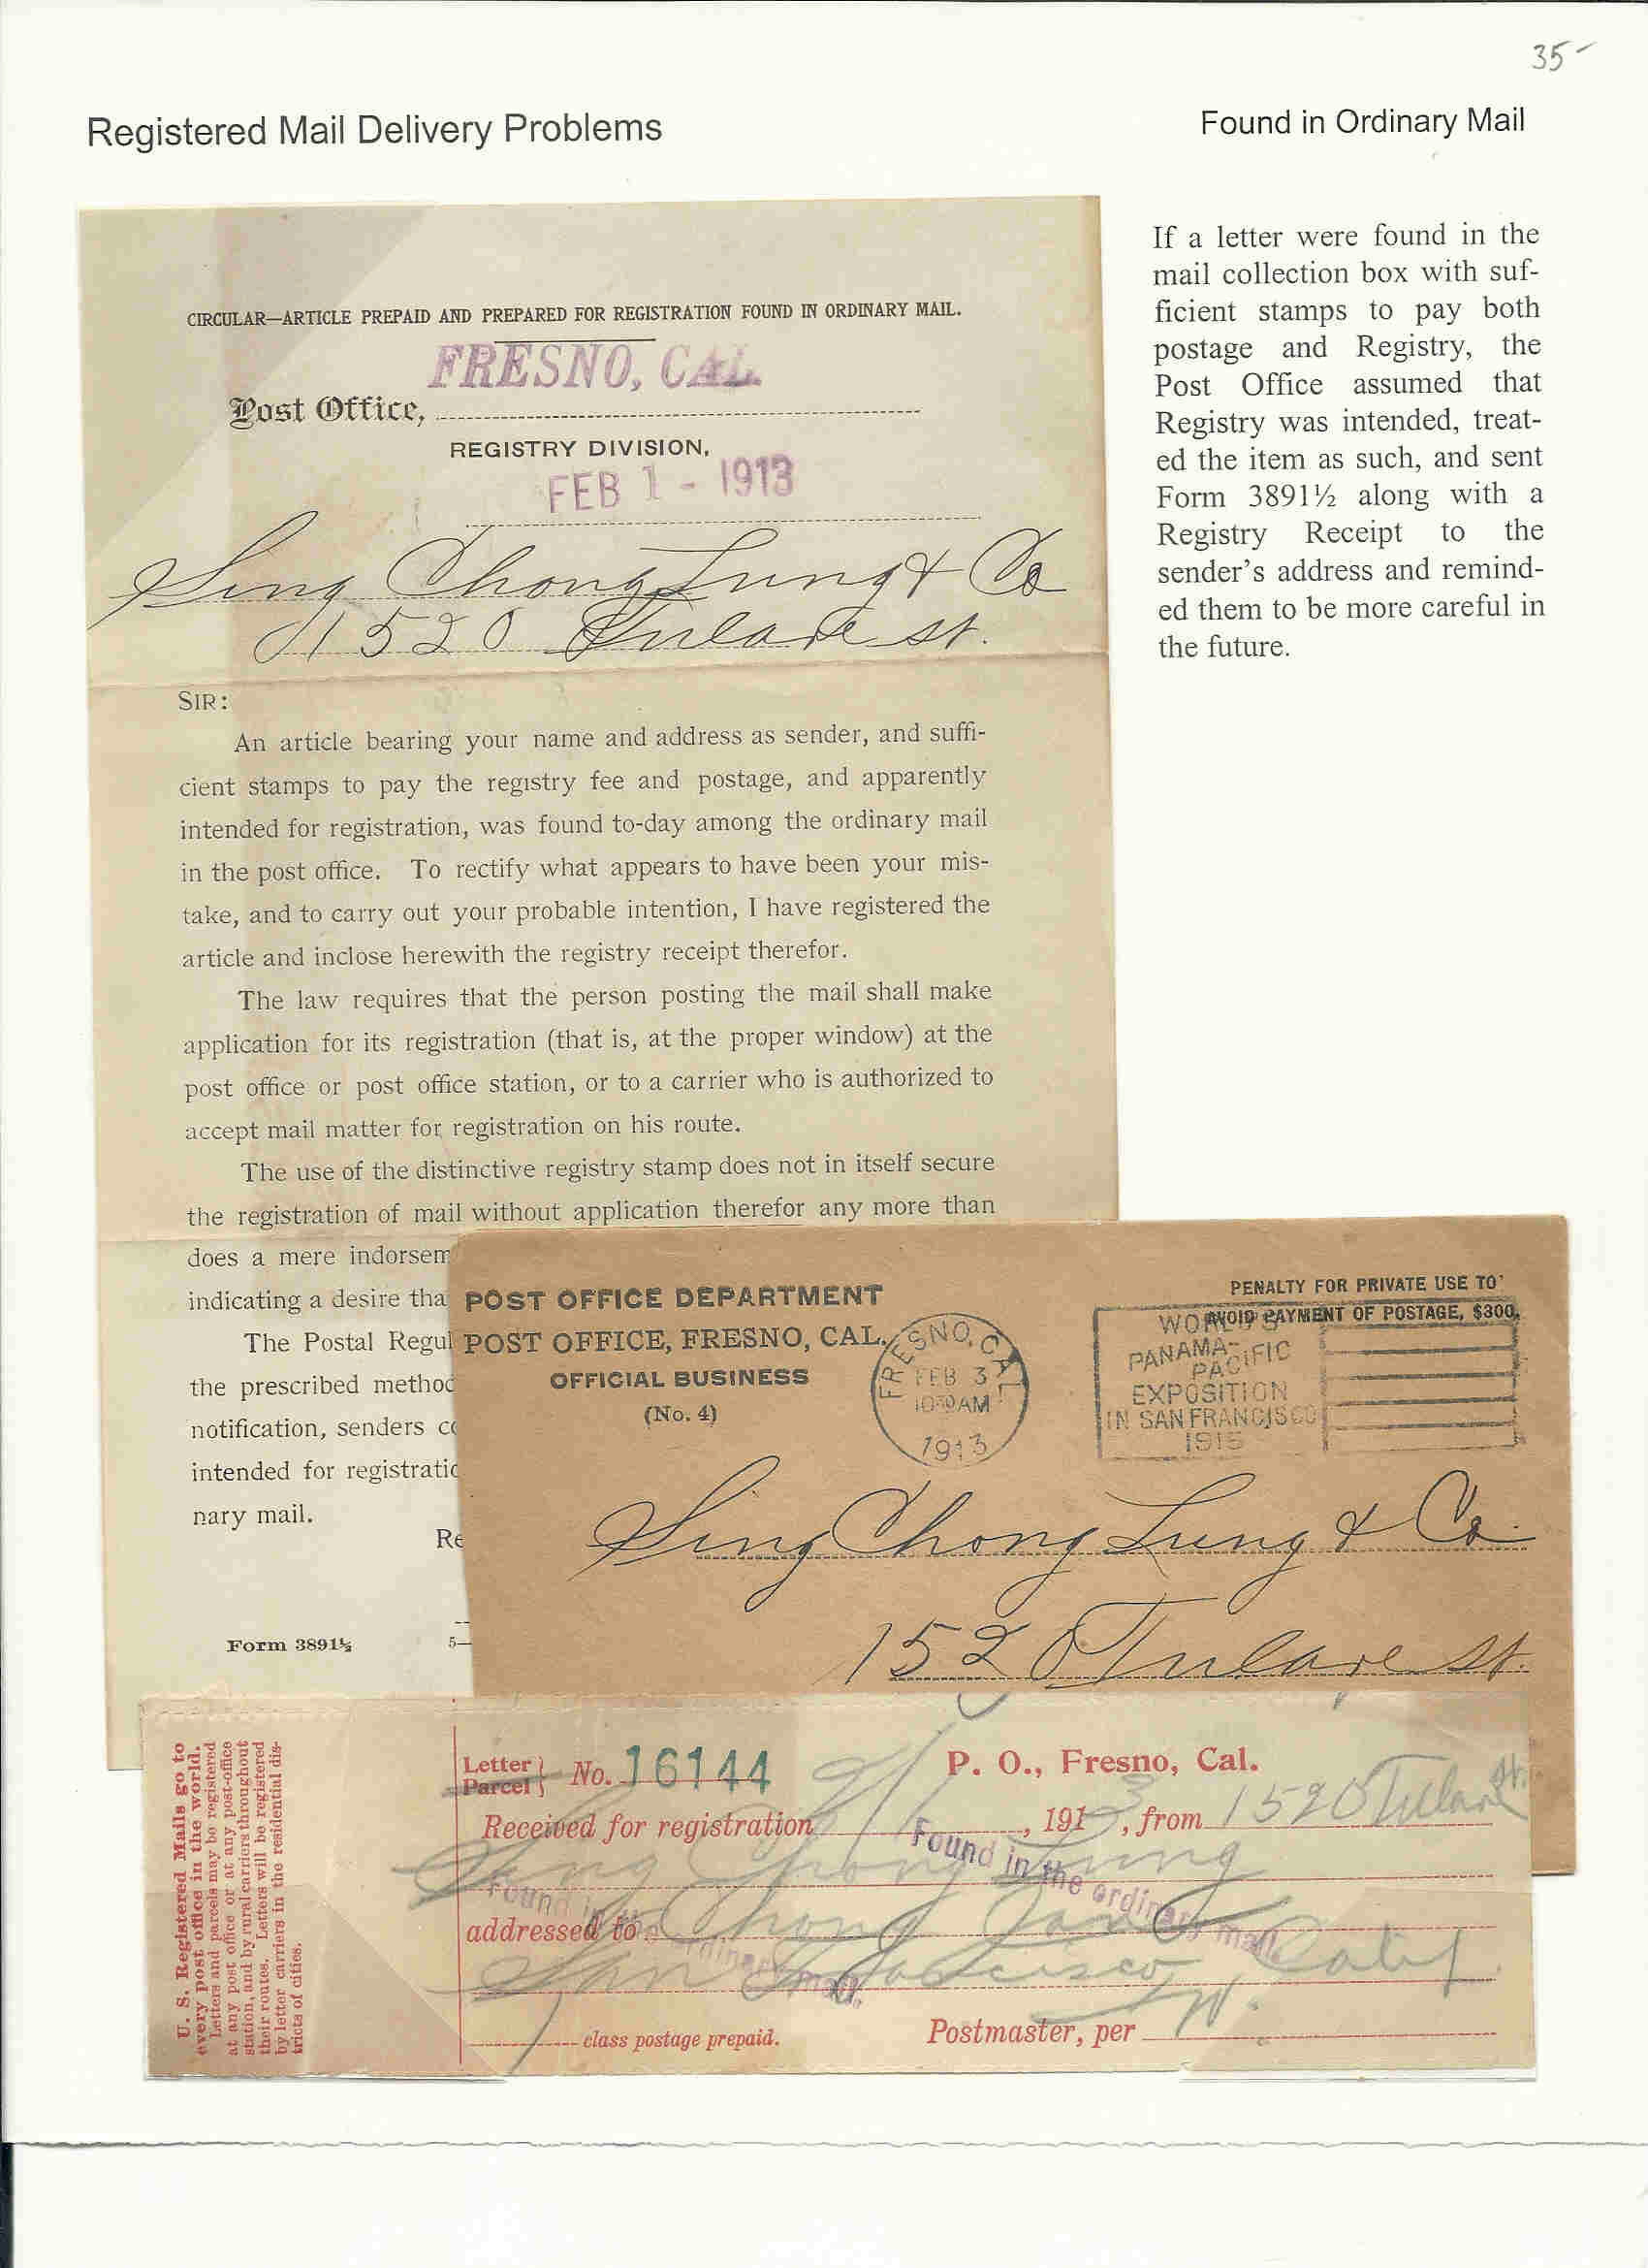 35-
Registered Mail Delivery Problems
Found in Ordinary Mail
If a letter were found in the
mail collection box with suf-
ficient stamps to pay both
postage and Registry, the
Post Office assumed that
Registry was intended, treat-
ed the item as such, and sent
Form 3891½ along with a
Registry Receipt to the
sender's address and remind-
ed them to be more careful in
the future.
CIRCULAR—ARTICLE PREPAID AND PREPARED FOR REGISTRATION FOUND IN ORDINARY MAIL.
FRESNO, CAL.
Post Office,
REGISTRY DIVISION,
FEB 1 - 1913
Sing Chong Lung & Co
1520 Tulare st.
SIR:
An article bearing your name and address as sender, and suffi-
cient stamps to pay the registry fee and postage, and apparently
intended for registration, was found to-day among the ordinary mail
in the post office. To rectify what appears to have been your mis-
take, and to carry out your probable intention, I have registered the
article and inclose herewith the registry receipt therefor.
The law requires that the person posting the mail shall make
application for its registration (that is, at the proper window) at the
post office or post office station, or to a carrier who is authorized to
accept mail matter for registration on his route.
The use of the distinctive registry stamp does not in itself secure
the registration of mail without application therefor any more than
does a mere indorsem
indicating a desire tha
The Postal Regul
the prescribed method
notification, senders co
intended for registratio
nary mail.
Re
Form 3891½
5—
POST OFFICE DEPARTMENT
POST OFFICE, FRESNO, CAL.
OFFICIAL BUSINESS
(No. 4)
FRESNO, CAL
FEB 3
10 30 AM
1913
PENALTY FOR PRIVATE USE TO
AVOID PAYMENT OF POSTAGE, $300.
WORLD'S
PANAMA-
PACIFIC
EXPOSITION
IN SAN FRANCISCO
1915
Sing Chong Lung & Co.
1520 Tulare st.
U. S. Registered Mails go to
every post office in the world.
Letters and parcels may be registered
at any post office or at any post-office
station, and by rural carriers throughout
their routes. Letters will be registered
by letter carriers in the residential dis-
tricts of cities.
Letter
Parcel
No. 16144
P. O., Fresno, Cal.
Received for registration 2/1, 1913, from 1520 Tulare St.
Sing Chong Lung
Found in the ordinary mail.
Found in the ordinary mail.
addressed to Chong
San Francisco Calif
1 class postage prepaid.
Postmaster, per